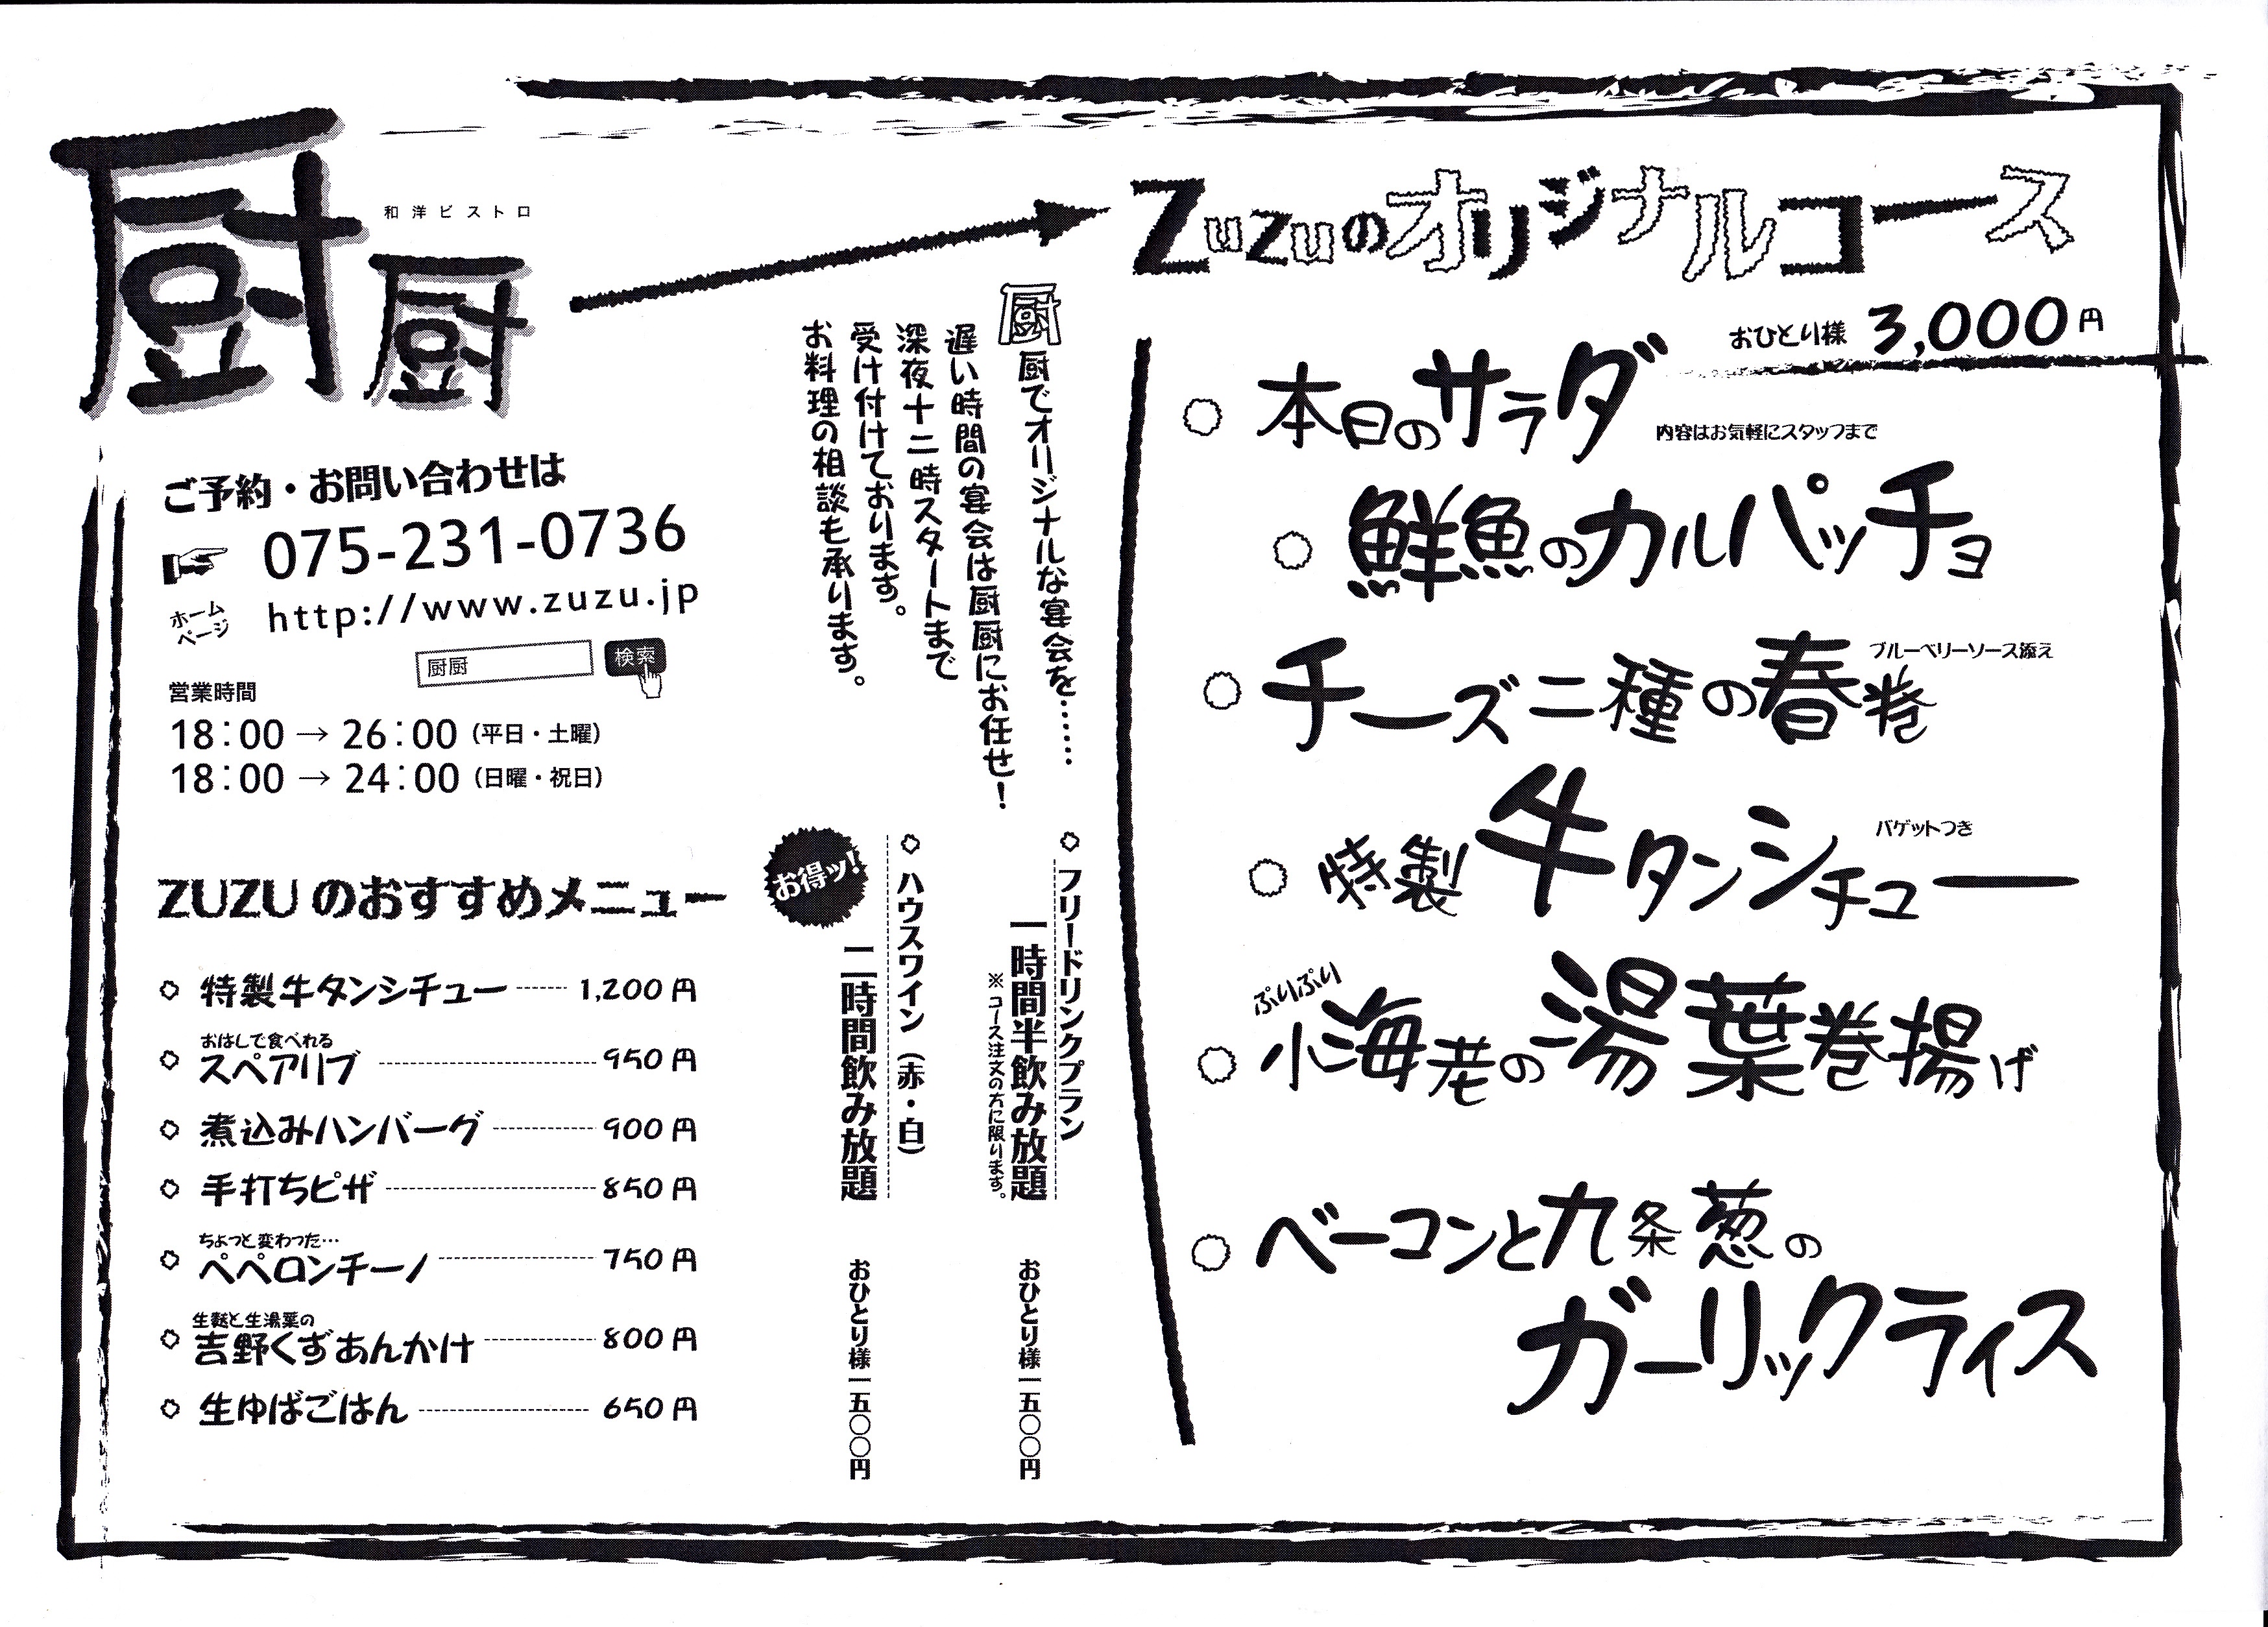 厨厨
和洋ビストロ
ご予約・お問い合わせは
075-231-0736
ホームページ
http://www.zuzu.jp
厨厨 検索
営業時間
18:00→26:00(平日・土曜)
18:00→24:00(日曜・祝日)
ZUZUのおすすめメニュー
特製牛タンシチュー 1,200円
おはしで食べれる
スペアリブ 950円
煮込みハンバーグ 900円
手打ちピザ 850円
ちょっと変わった…
ペペロンチーノ 750円
生麩と生湯葉の
吉野くずあんかけ 800円
生ゆばごはん 650円
厨厨でオリジナルな宴会を……
遅い時間の宴会は厨厨にお任せ!
深夜十二時スタートまで
受け付けております。
お料理の相談も承ります。
フリードリンクプラン
一時間半飲み放題
※コース注文の方に限ります。
おひとり様一五〇〇円
ハウスワイン(赤・白)
二時間飲み放題
お得ッ!
おひとり様一五〇〇円
Zuzuのオリジナルコース
おひとり様 3,000円
本日のサラダ
内容はお気軽にスタッフまで
鮮魚のカルパッチョ
チーズ二種の春巻
ブルーベリーソース添え
特製牛タンシチュー
バゲットつき
ぷりぷり
小海老の湯葉巻揚げ
ベーコンと九条葱の
ガーリックライス